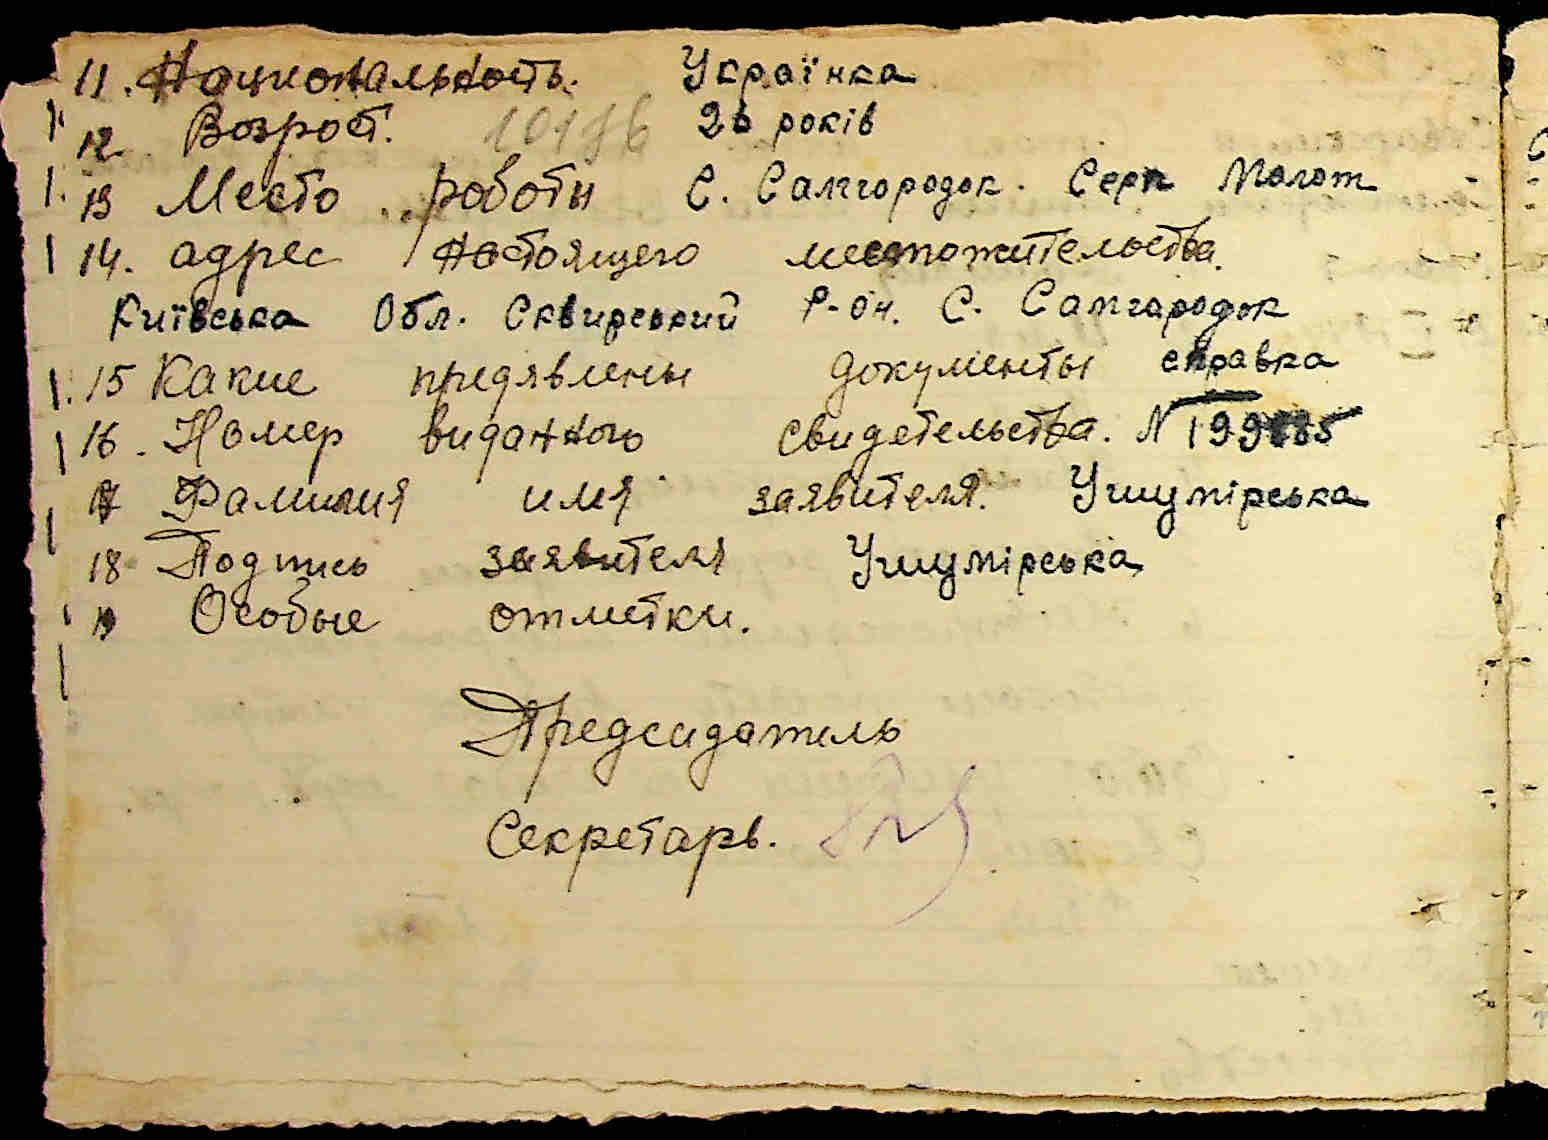 11. Национальность. Українка
12. Возрост. 26 років
13 Место роботы С. Самгородок. Серп Молот
14. адрес настоящего местожительства.
Київська Обл. Сквирський Р-он. С. Самгородок
15 Какие предявлены документы справка
16. Номер виданного свидетельства. N
17 Фамилия имя заявителя. Ушумірська
18 Подпись заявителя Ушумірська
19 Особые отметки.
Председатель
Секретарь.